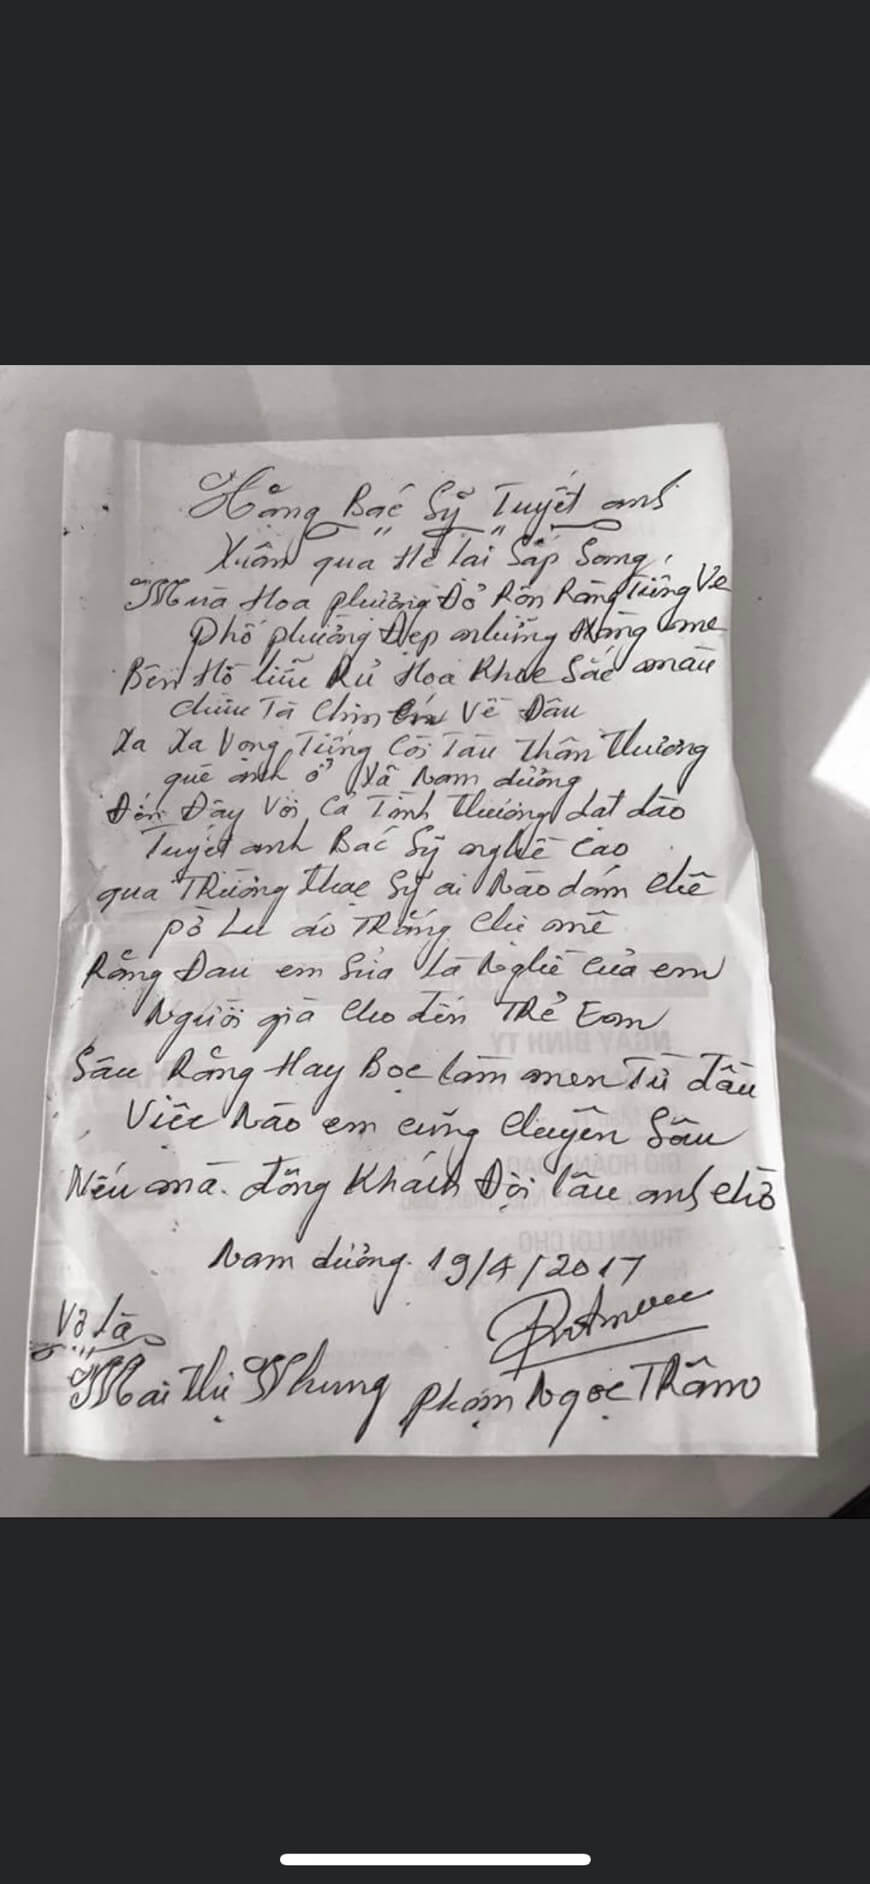 Hằng Bác Sỹ Tuyết anh
Xuân qua Hè lại Sắp Sang
Mùa Hoa phượng Đỏ Rộn Ràng Tiếng Ve
Phố phường Đẹp những Hàng me
Bên Hồ liễu Rủ Hoa Khoe Sắc màu
Chiều Tà Chim én Về Đâu
Xa Xa Vọng Tiếng Còi Tàu Thân Thương
quê anh ở Xã Nam dương
Đến Đây Với Cả Tình Thương dạt dào
Tuyết anh Bác Sỹ nghề Cao
qua Trường thạc Sỹ ai Nào dám chê
Pờ Lu áo Trắng Chị mê
Răng Đau em Sửa là Nghề của em
Người già Cho đến Trẻ Em
Sâu Răng Hay Bọc làm men Từ đầu
Việc Nào em cũng chuyên Sâu
Nếu mà đông Khách Đợi lâu anh chờ
Nam dương 19/4/2017
Vợ là
Mai Thị Nhung Phạm Ngọc Thâm